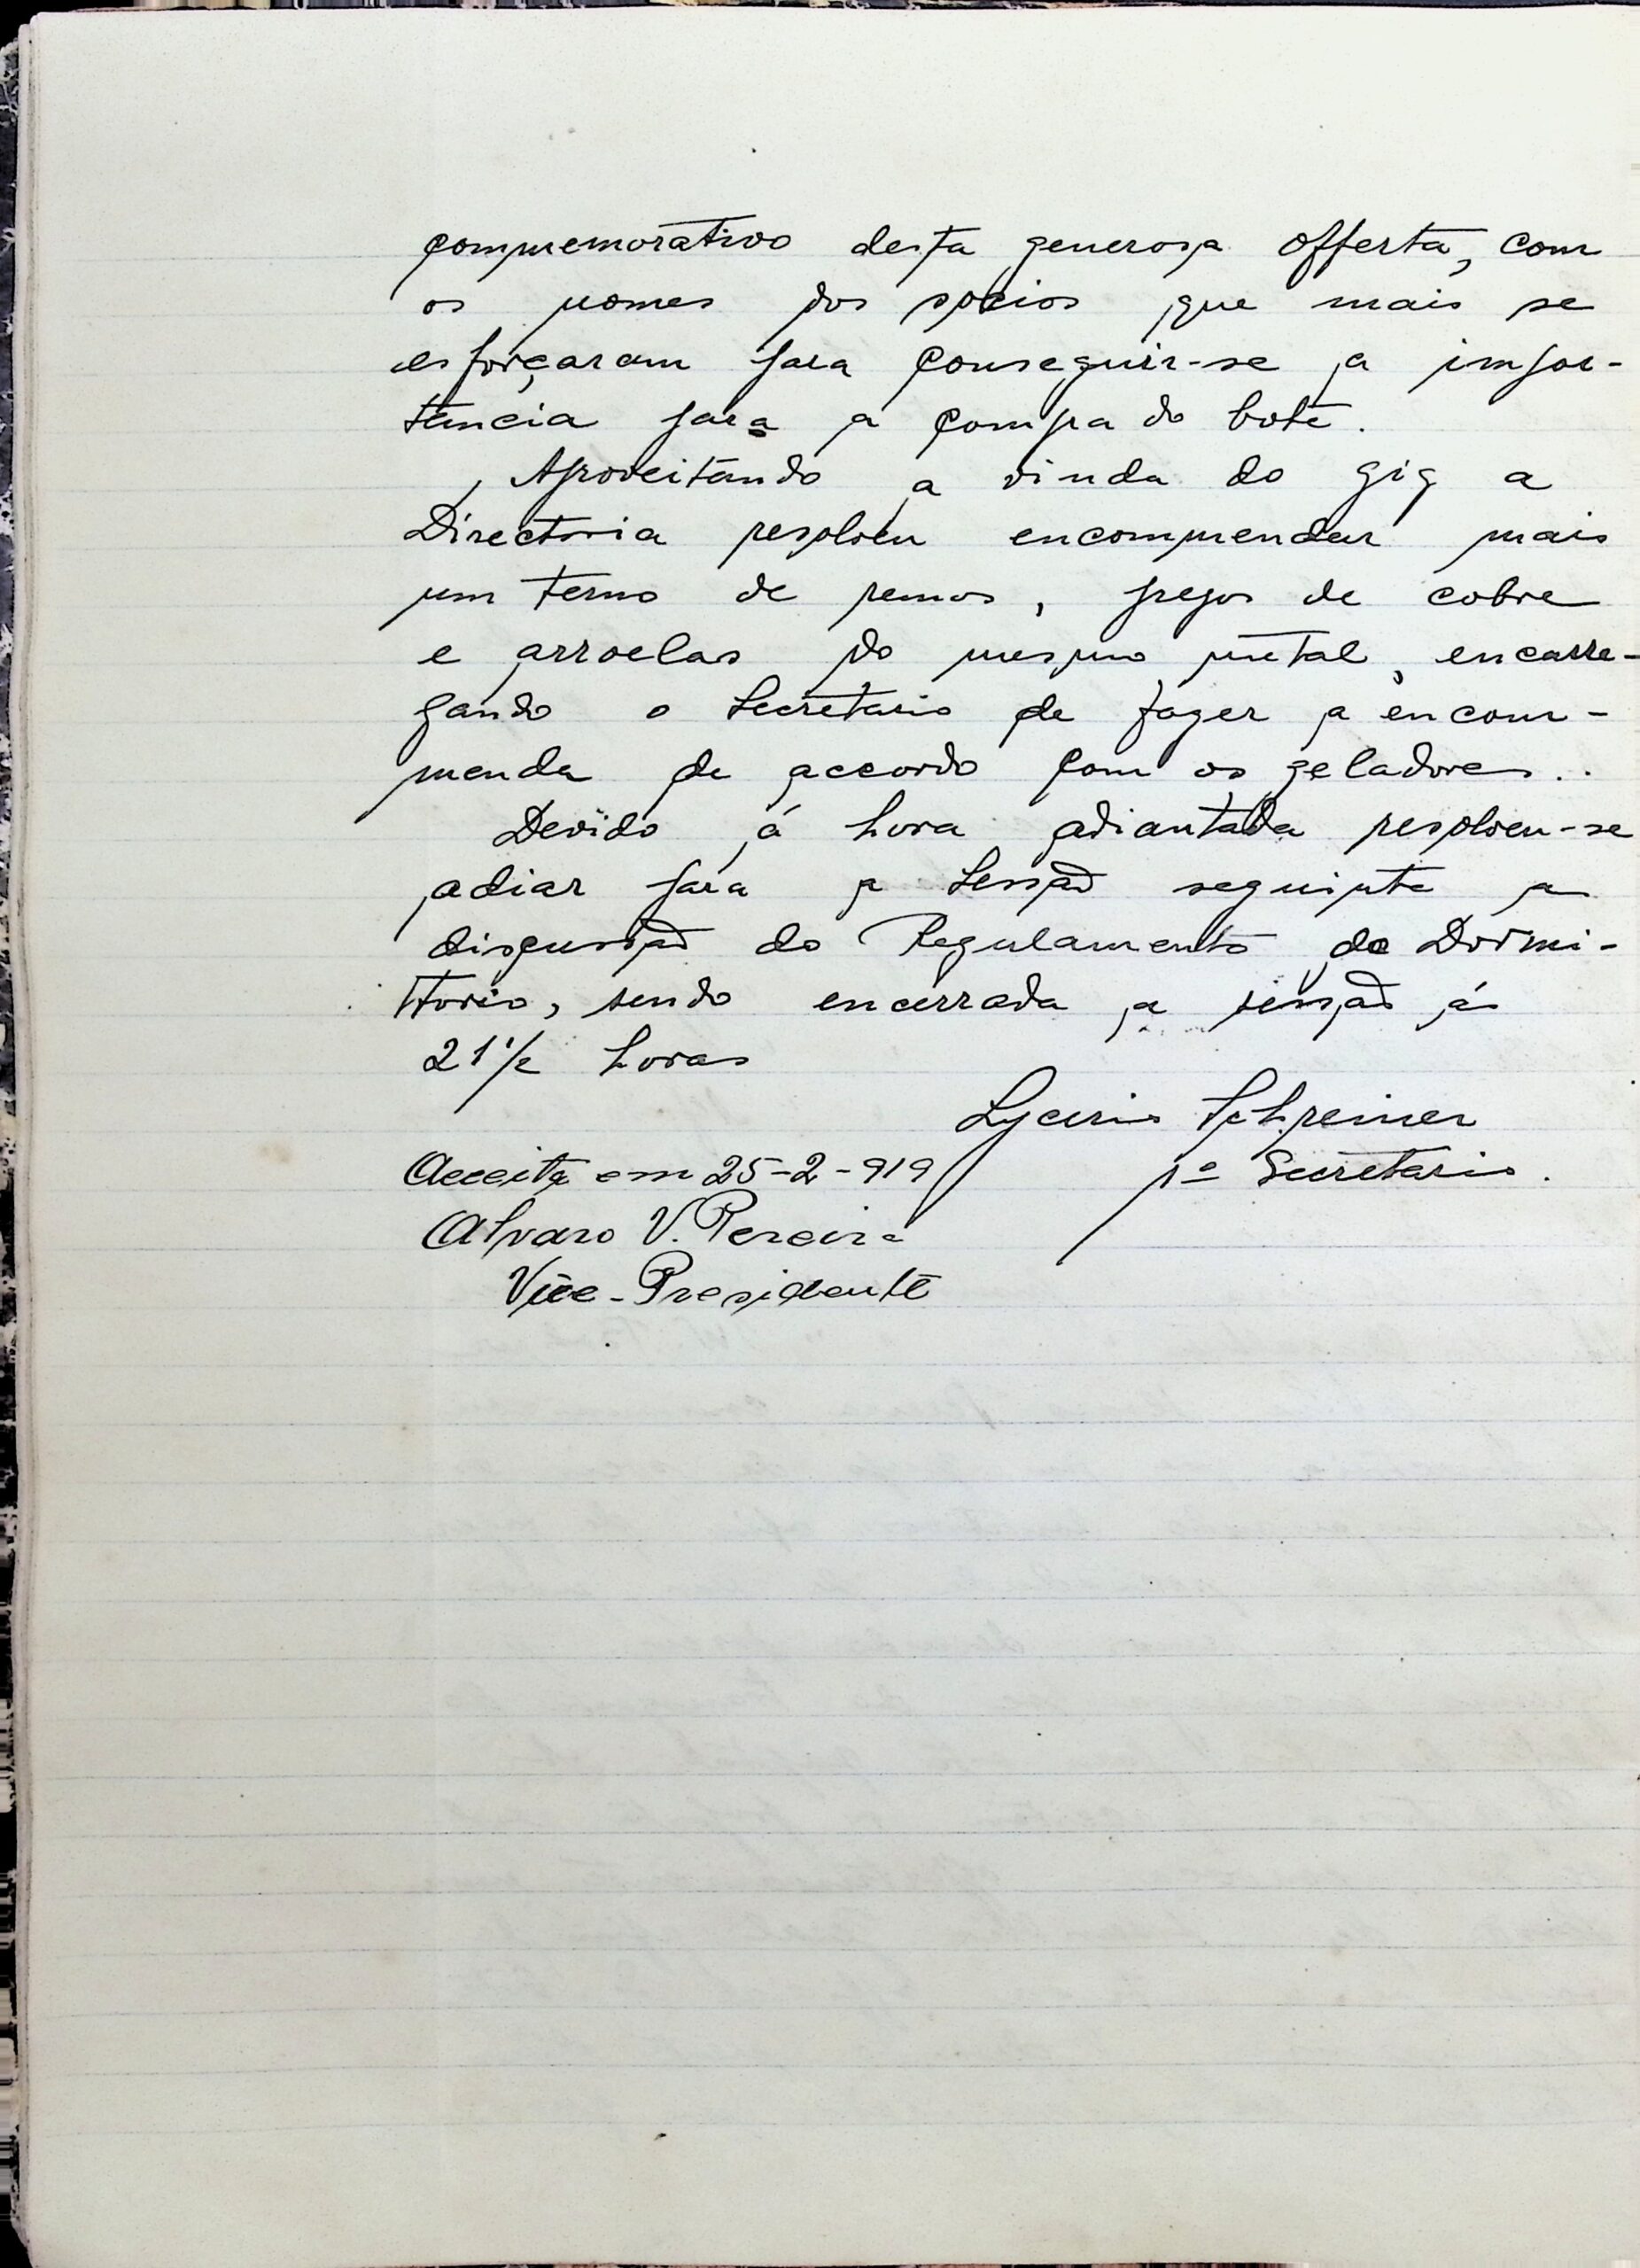 commemorativo desta generosa offerta, com
os nomes dos socios que mais se
esforçaram para conseguir-se a impor-
tancia para a compra do bote.
Aproveitando a vinda do gig a
Directoria resolveu encommendar mais
um terno de remos, pregos de cobre
e arroelas do mesmo metal, encarre-
gando o Secretario de fazer a encom-
menda de accordo com os zeladores..
Devido á hora adiantada resolveu-se
adiar para a Sessaõ seguinte a
discussaõ do Regulamento do Dormi-
torio, sendo encerrada a sessaõ ás
21 1/2 horas
Lycurio Schreiner
1º Secretario.
Acceita em 25-2-919
Alvaro V. Pereira
Vice-Presidente